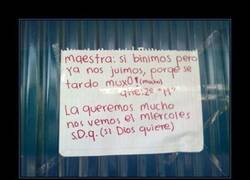 maestra: si binimos pero
ya nos juimos, porqe se
tardo muxo! (mucho)
atte: 2º "M"
La queremos mucho
nos vemos el miercoles
s.D.q. (si Dios quiere)